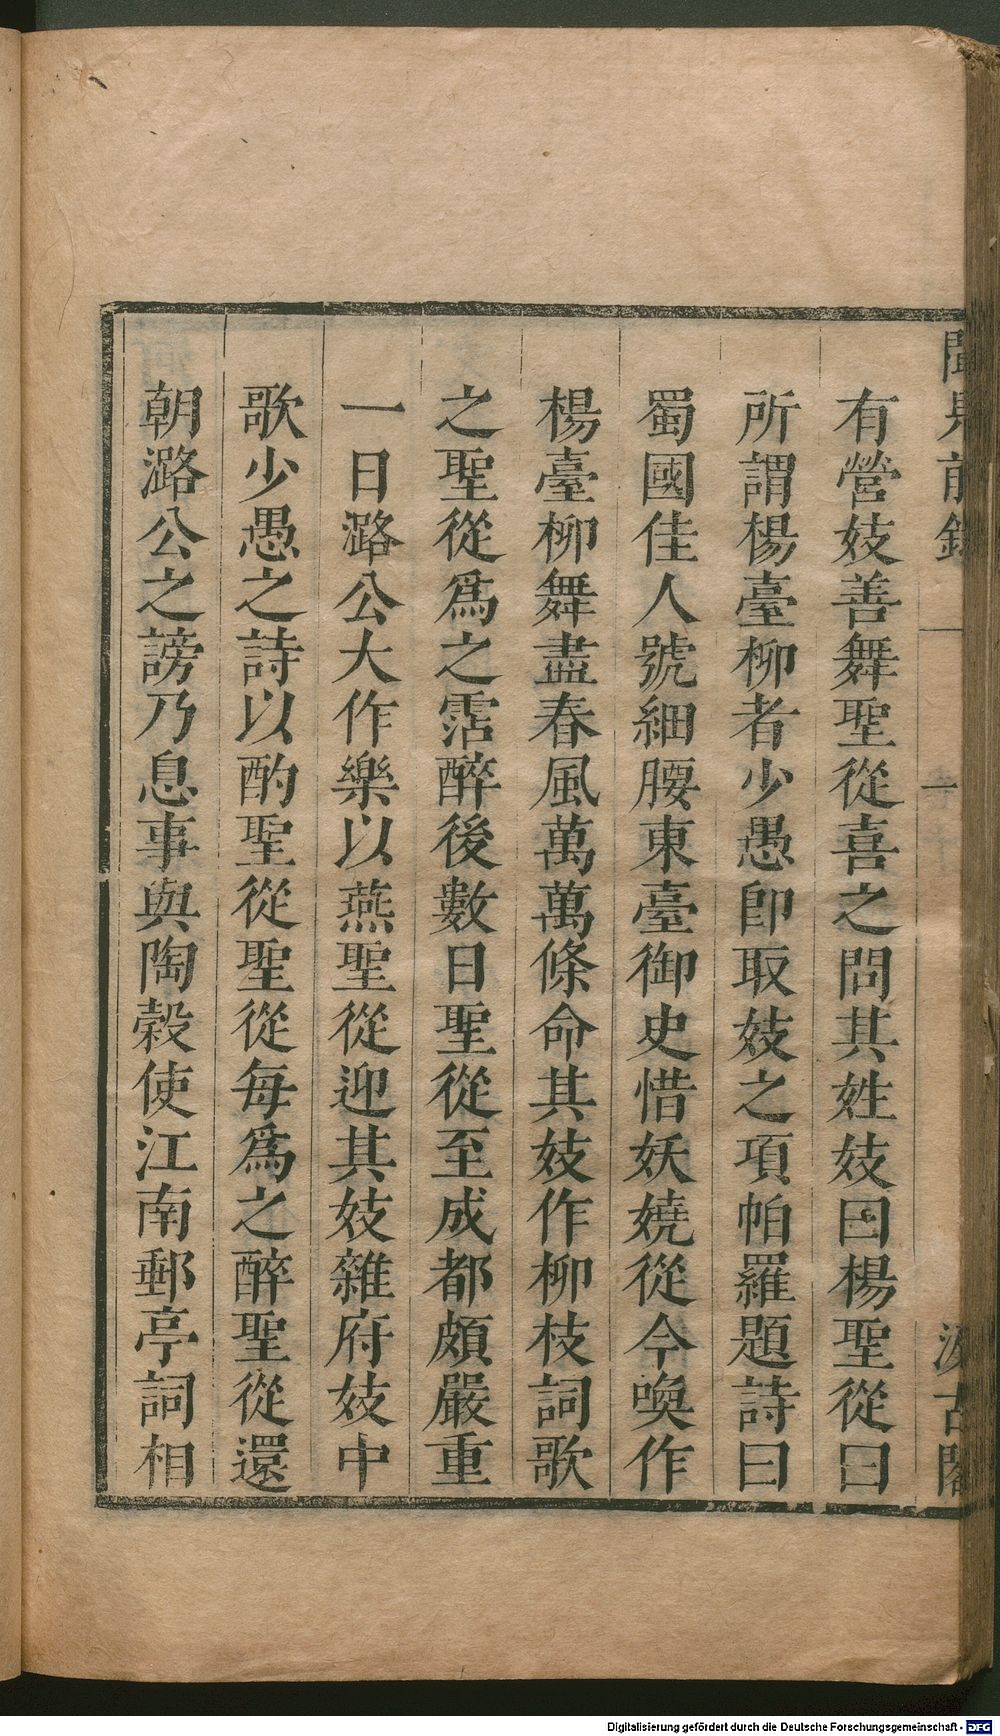 聞見前錄
一
汲古閣
有營妓善舞聖從喜之問其姓妓曰楊聖從曰
所謂楊臺柳者少愚卽取妓之項帕羅題詩曰
蜀國佳人號細腰東臺御史惜妖嬈從今喚作
楊臺柳舞盡春風萬萬條命其妓作柳枝詞歌
之聖從爲之霑醉後數日聖從至成都頗嚴重
一日潞公大作樂以燕聖從迎其妓雜府妓中
歌少愚之詩以酌聖從聖從每爲之醉聖從還
朝潞公之謗乃息事與陶穀使江南郵亭詞相
Digitalisierung gefördert durch die Deutsche Forschungsgemeinschaft - DFG